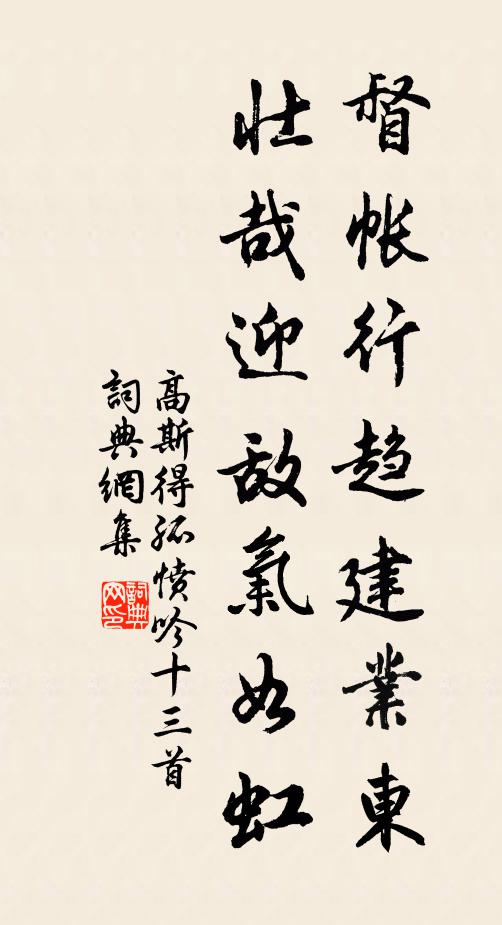 督帐行趋建業東
壮哉迎敌氣如虹
高斯得孤憤吟十三首
詞典網集
詞典网印